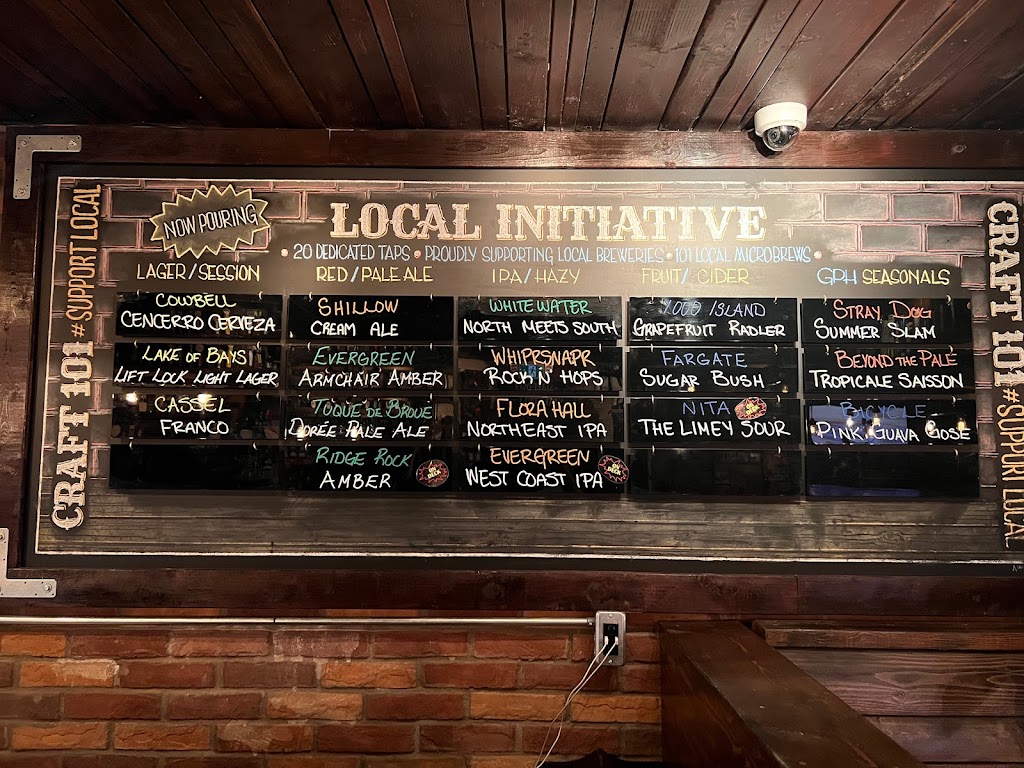 NOW POURING
LOCAL INITIATIVE
• 20 DEDICATED TAPS • PROUDLY SUPPORTING LOCAL BREWERIES • 101 LOCAL MICROBREWS •
CRAFT 101 #SUPPORT LOCAL
LAGER/SESSION
COWBELL
CENCERRO CERVEZA
LAKE OF BAYS
LIFT LOCK LIGHT LAGER
CASSEL
FRANCO
RED/PALE ALE
SHILLOW
CREAM ALE
EVERGREEN
ARMCHAIR AMBER
TOQUE DE BROUE
DORÉE PALE ALE
RIDGE ROCK
AMBER
IPA/HAZY
WHITEWATER
NORTH MEETS SOUTH
WHIPRSNAPR
ROCK N' HOPS
FLORA HALL
NORTHEAST IPA
EVERGREEN
WEST COAST IPA
FRUIT/CIDER
1000 ISLAND
GRAPEFRUIT RADLER
FARGATE
SUGAR BUSH
NITA
THE LIMEY SOUR
GPH SEASONALS
STRAY DOG
SUMMER SLAM
BEYOND THE PALE
TROPICALE SAISSON
BICYCLE
PINK GUAVA GOSE
CRAFT 101 #SUPPORT LOCAL